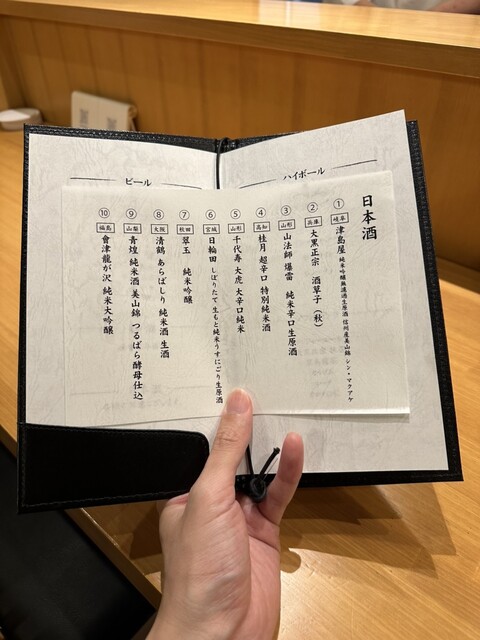 ハイボール
ビール
日本酒
① 岐阜 津島屋 純米吟醸無濾過生原酒 信州産美山錦 シン・マクアケ
② 兵庫 大黒正宗 酒草子（秋）
③ 山形 山法師 爆雷 純米辛口生原酒
④ 高知 桂月 超辛口 特別純米酒
⑤ 山形 千代寿 大虎 大辛口純米
⑥ 宮城 日輪田 しぼりたて 生もと純米うすにごり生原酒
⑦ 秋田 翠玉 純米吟醸
⑧ 大阪 清鶴 あらばしり 純米酒 生酒
⑨ 山梨 青煌 純米酒 美山錦 つるばら酵母仕込
⑩ 福島 會津龍が沢 純米大吟醸